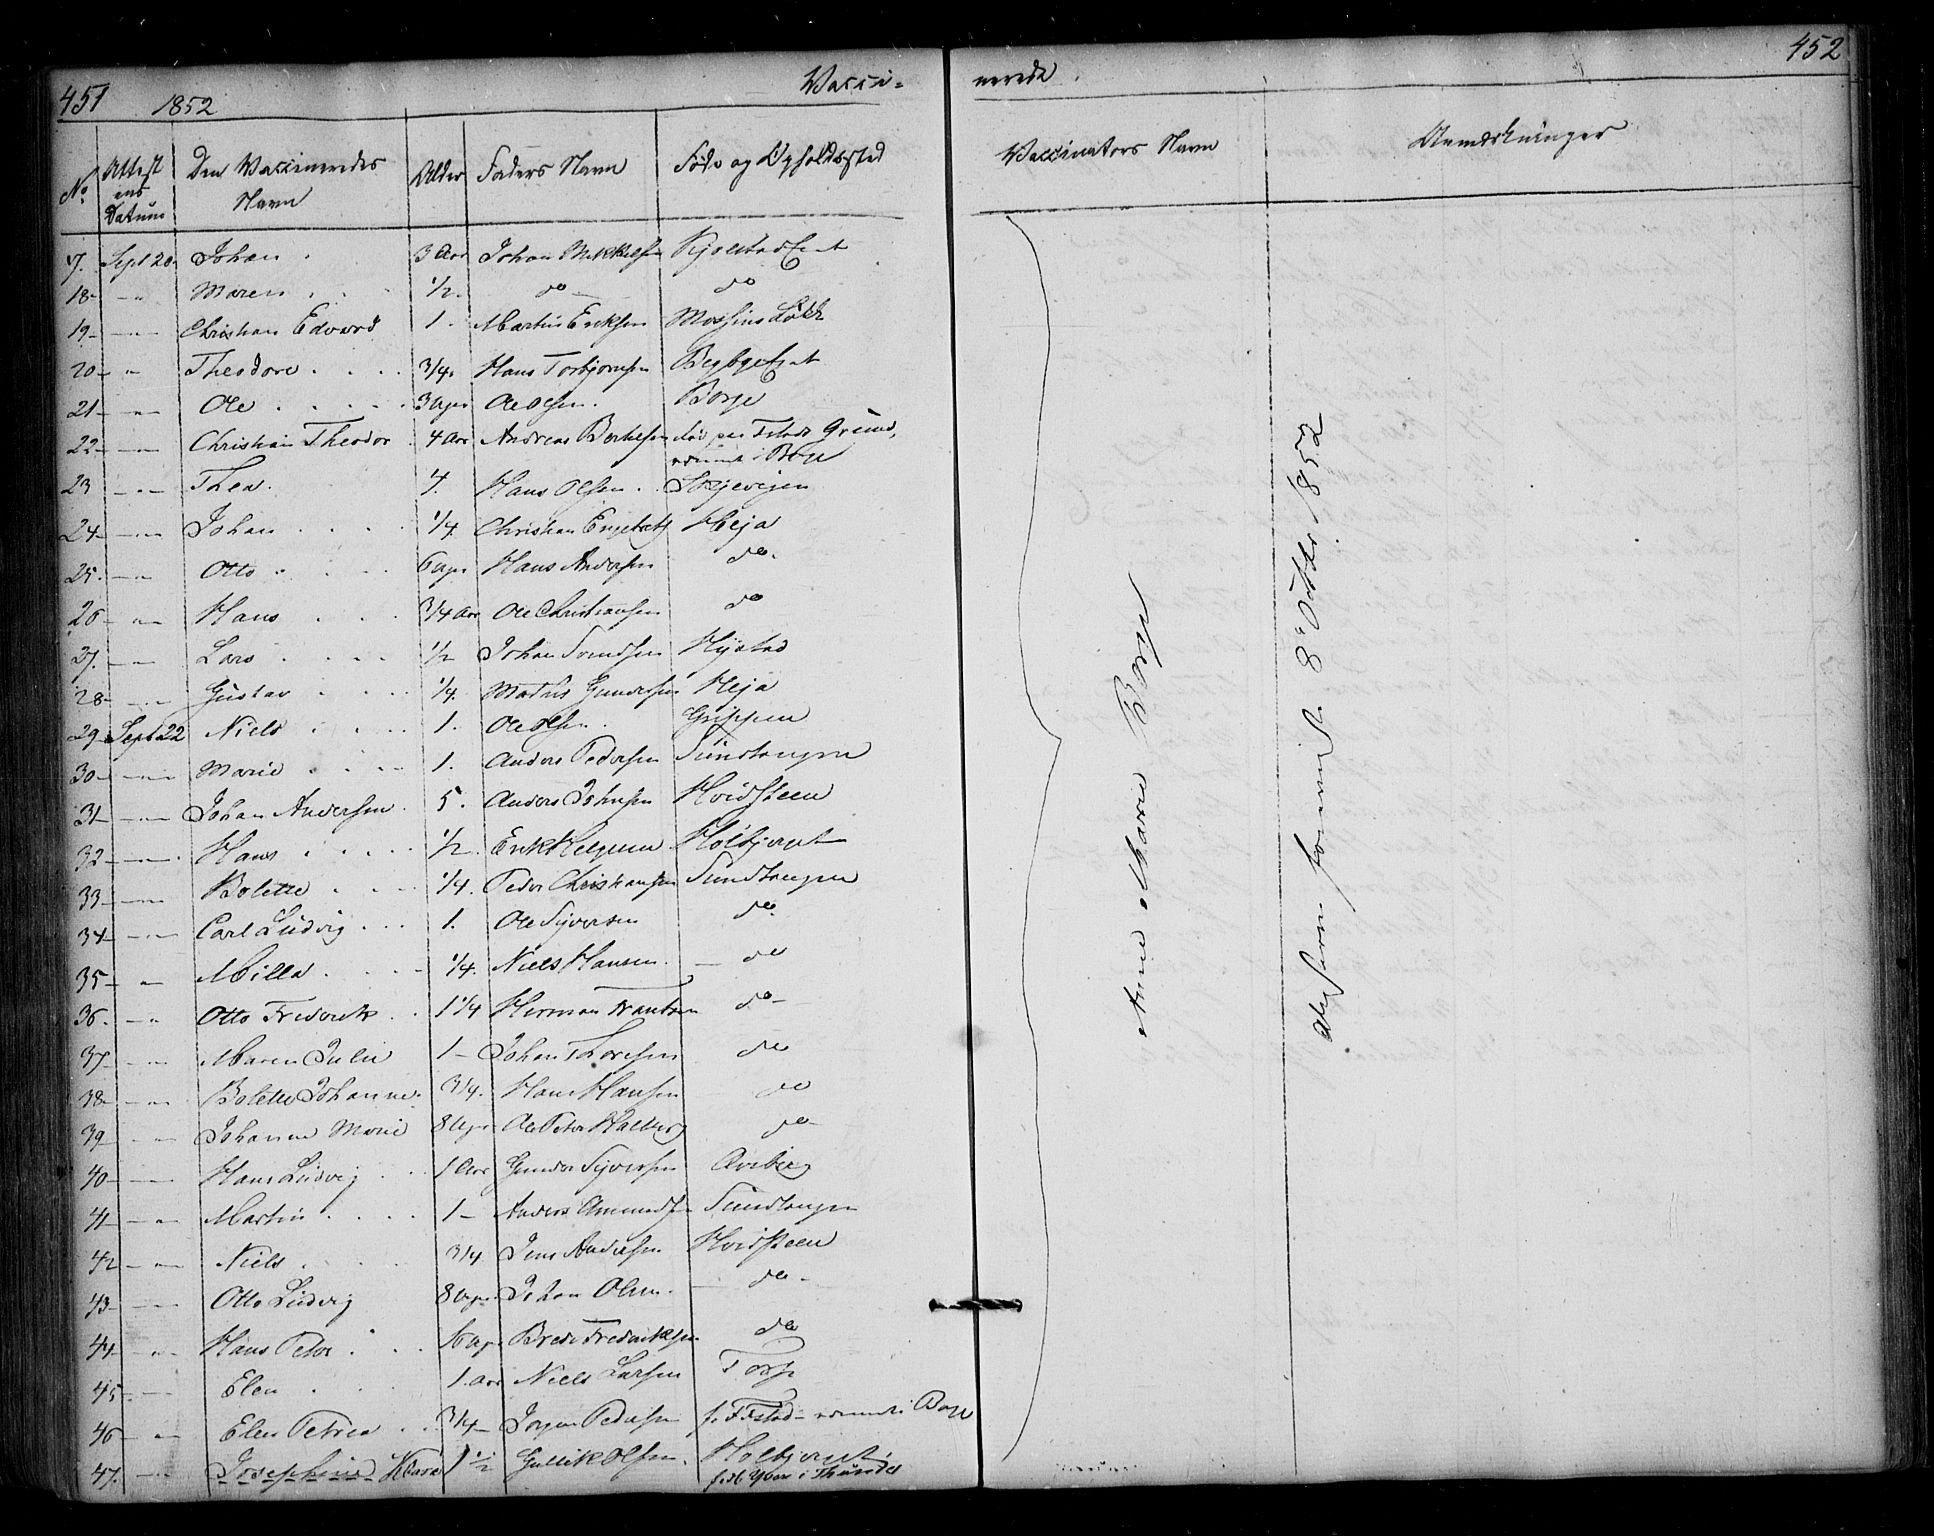 451 1852 Vacci-
nerede. 452
No Attestens Datum Den Vaccineredes Navn Alder Faders Navn Føde og Opholdssted
Vaccinators Navn Anmærkninger
17. Sept 20 Johan 3 Aar Johan Mikkelsen Kjølstad
18 - " Maren 1/2. do do
19 - " Christian Edvard 1. Martin Eriksen
20 - " Theodore 3/4. Hans Torbjørnsen Begby
21 - " Ole 3 Uger Ole Olsen. Borge
22 - " Christian Theodor 4 Aar Andreas Fstads Grund,
i Borge
23 - " Thea. 4. Hans Olsen
24 - " Johan 1/4. Christian Heja
25. - " Otto 6 Uger Hans Andersen do.
26 - " Hans 3/4 Aar Ole Christiansen do
27. - " Lars 1/2 Johan Svendsen
28 - " Gustav 1/4. Mathis Gundersen Heja
29 Sept 22 Niels 1. Ole Olsen Grippen
30 - " Marie 1. Anders Pedersen Sundtangen
31 - " Johan Andersen 5. Anders Johnsen Hvidsteen
32 - " Hans 1/2. Erik Helgesen
33 - " Bolette 1/4. Peder Christiansen Sundtangen
34 - " Carl Ludvig 1. Ole Syversen do.
35 - " Milla 1/4. Niels Hansen. - do
36. - " Otto Frederik 1 1/4 Herman Frantsen do -
37 - " Maren Julie 1 - Johan Thoresen do
38 - " Bolette Johanne 3/4. Hans Hansen do
39 - " Johanne Marie 8 Uger Ole Peter do -
40 - " Hans Ludvig 1 Aar Gunder Syversen
41 - " Martin 1 - Anders Amundsen Sundtangen
42 - " Niels 3/4 Jens Andersen Hvidsteen
43 - " Otto Ludvig 8 Uger Johan Olsen. - do -
44 - " Hans Peder 16 Uger Brede Fredriksen do
45 - " Elen 1. Aar Niels Larsen Torp
46 - " Elen Petrea 3/4 - Jørgen Pedersen f. Fstad i Borge
47. - " Josephine 1 1/2 Gullik Olsen.
Anne Marie Borge
8 Octbr 1852